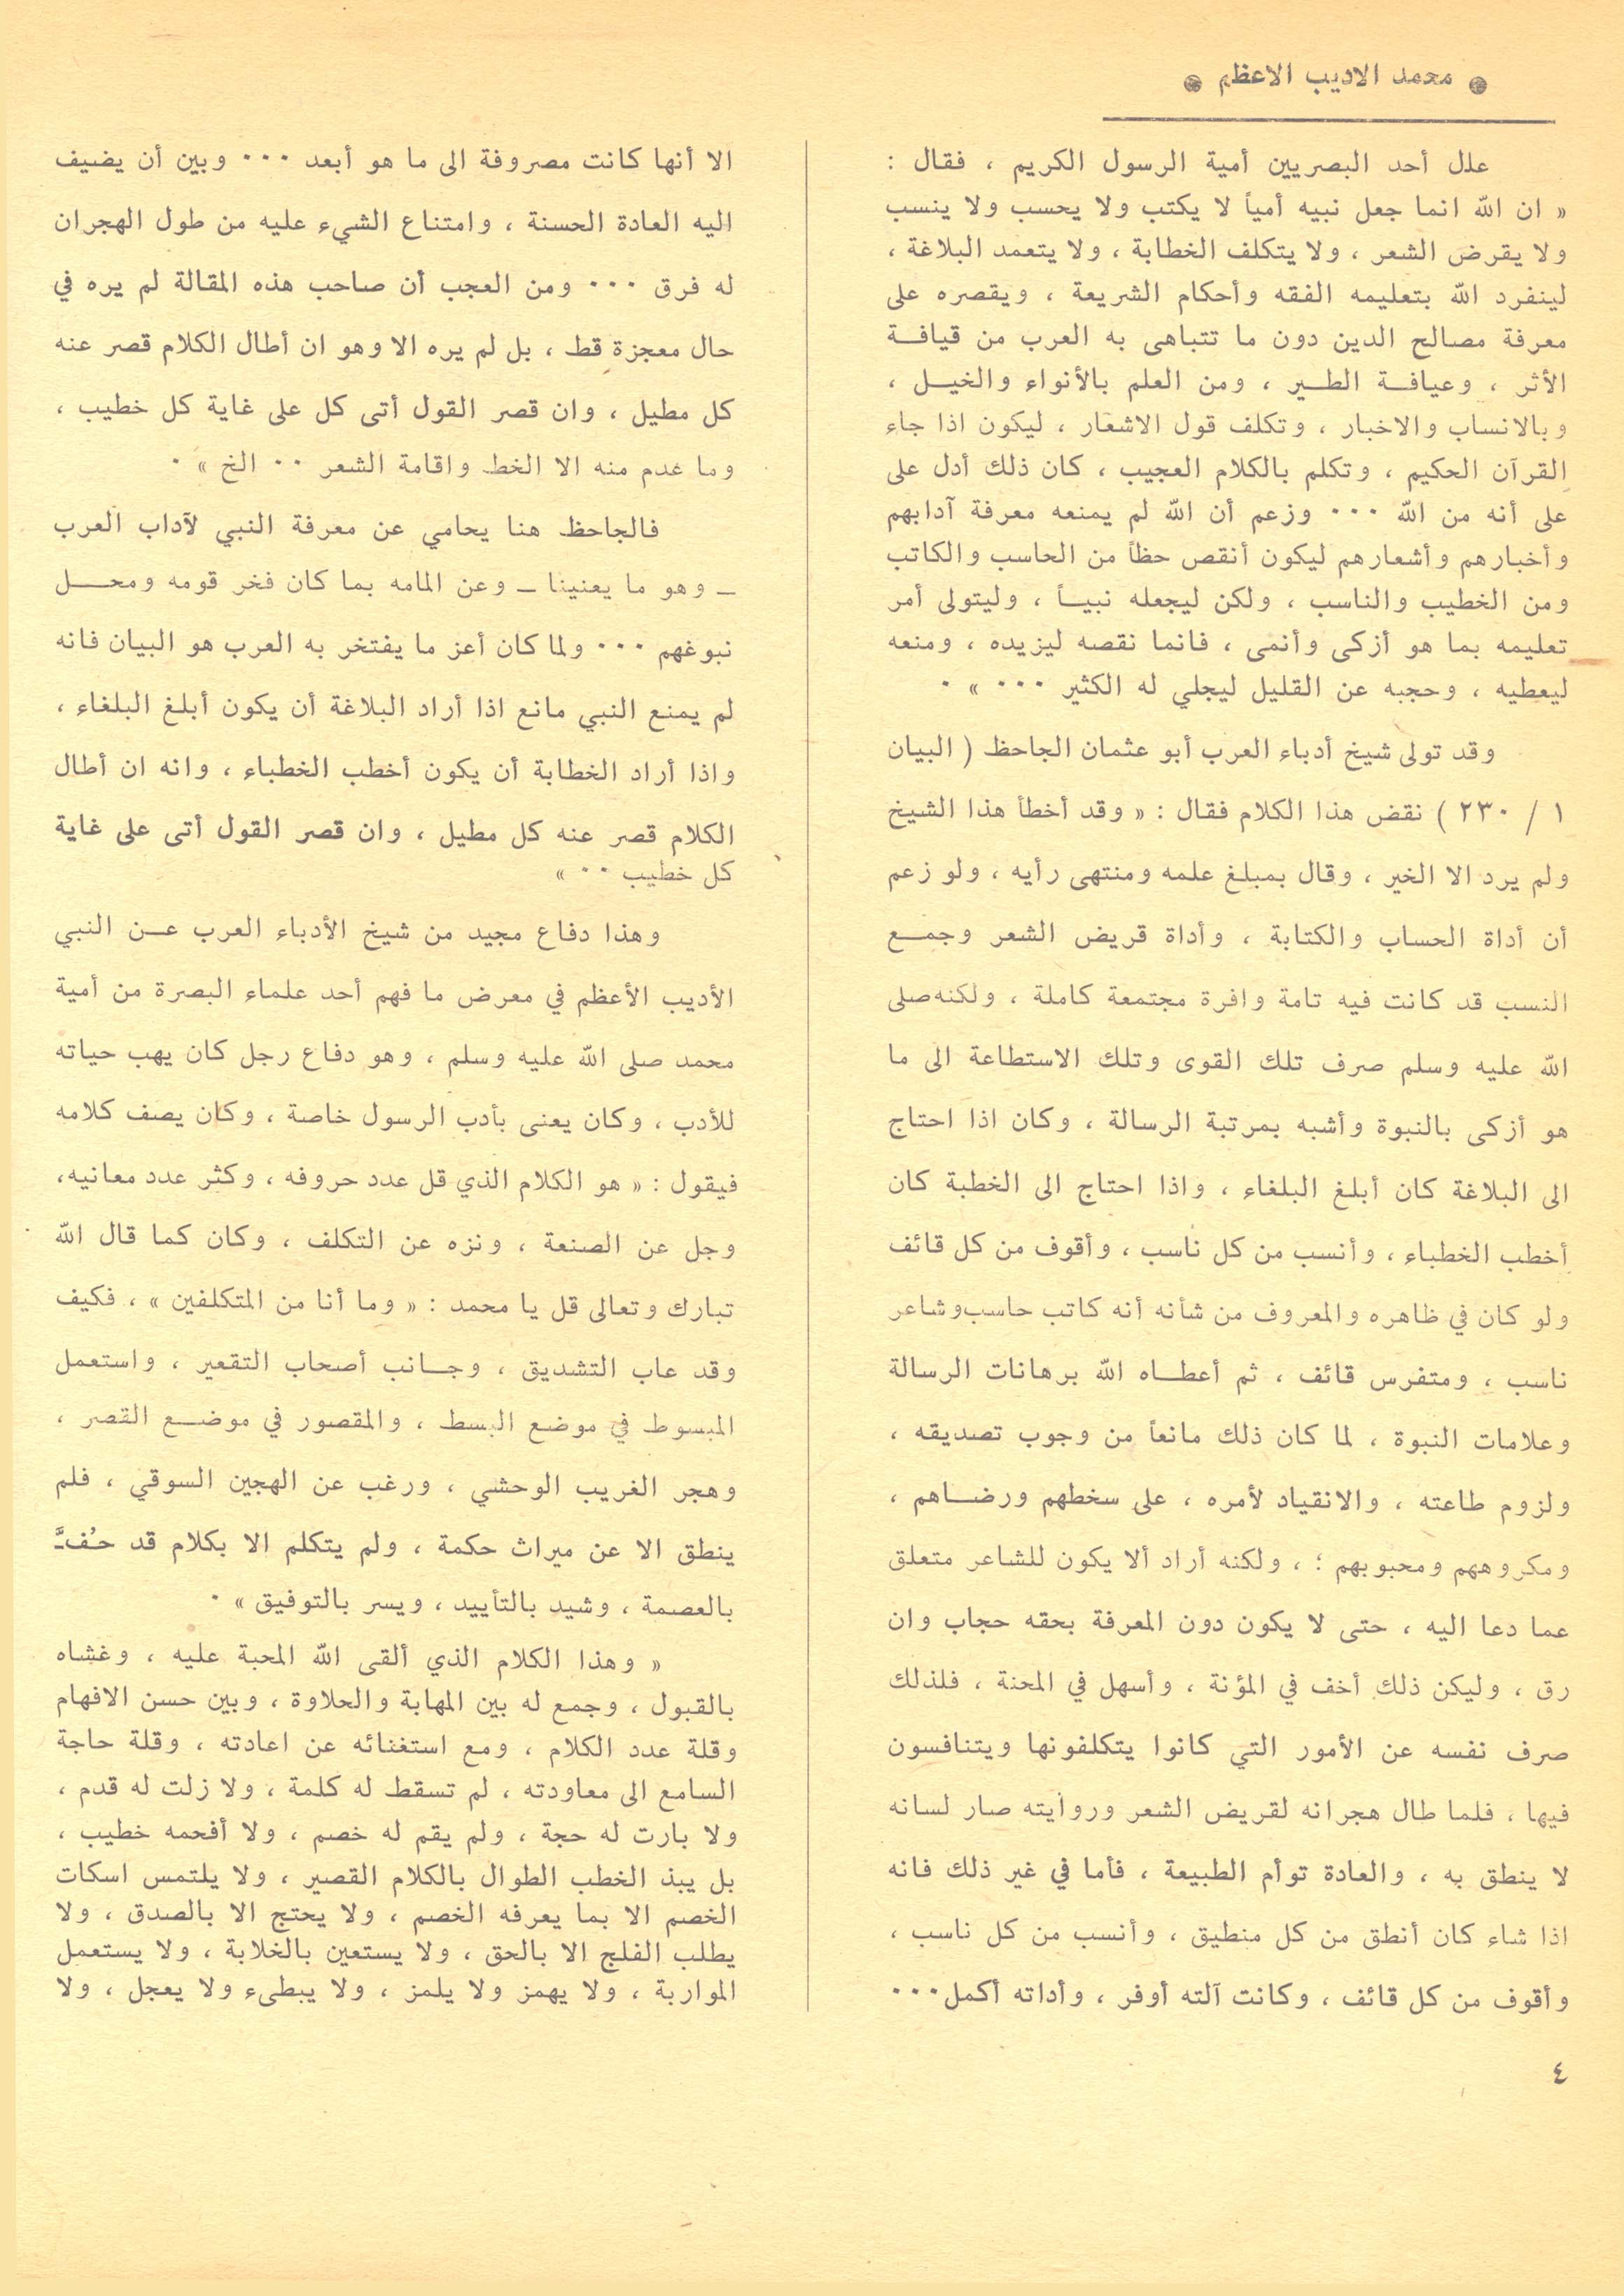 محمد الاديب الاعظم
علل أحد البصريين أمية الرسول الكريم ، فقال :
« ان الله انما جعل نبيه أمياً لا يكتب ولا يحسب ولا ينسب
ولا يقرض الشعر ، ولا يتكلف الخطابة ، ولا يتعمد البلاغة ،
لينفرد الله بتعليمه الفقه وأحكام الشريعة ، ويقصره على
معرفة مصالح الدين دون ما تتباهى به العرب من قيافة
الأثر ، وعيافة الطير ، ومن العلم بالأنواء والخيل ،
وبالانساب والاخبار ، وتكلف قول الاشعار ، ليكون اذا جاء
القرآن الحكيم ، وتكلم بالكلام العجيب ، كان ذلك أدل على
على أنه من الله ٠٠٠ وزعم أن الله لم يمنعه معرفة آدابهم
وأخبارهم وأشعارهم ليكون أنقص حظاً من الحاسب والكاتب
ومن الخطيب والناسب ، ولكن ليجعله نبياً ، وليتولى أمر
تعليمه بما هو أزكى وأنمى ، فانما نقصه ليزيده ، ومنعه
ليعطيه ، وحجبه عن القليل ليجلي له الكثير ٠٠٠ » ٠
وقد تولى شيخ أدباء العرب أبو عثمان الجاحظ ( البيان
١ / ٢٣٠ ) نقض هذا الكلام فقال : « وقد أخطأ هذا الشيخ
ولم يرد الا الخير ، وقال بمبلغ علمه ومنتهى رأيه ، ولو زعم
أن أداة الحساب والكتابة ، وأداة قريض الشعر وجمع
النسب قد كانت فيه تامة وافرة مجتمعة كاملة ، ولكنه صلى
الله عليه وسلم صرف تلك القوى وتلك الاستطاعة الى ما
هو أزكى بالنبوة وأشبه بمرتبة الرسالة ، وكان اذا احتاج
الى البلاغة كان أبلغ البلغاء ، واذا احتاج الى الخطبة كان
أخطب الخطباء ، وأنسب من كل ناسب ، وأقوف من كل قائف
ولو كان في ظاهره والمعروف من شأنه أنه كاتب حاسب وشاعر
ناسب ، ومتفرس قائف ، ثم أعطاه الله برهانات الرسالة
وعلامات النبوة ، لما كان ذلك مانعاً من وجوب تصديقه ،
ولزوم طاعته ، والانقياد لأمره ، على سخطهم ورضاهم ،
ومكروههم ومحبوبهم ؛ ، ولكنه أراد ألا يكون للشاعر متعلق
عما دعا اليه ، حتى لا يكون دون المعرفة بحقه حجاب وان
رق ، وليكن ذلك أخف في المؤنة ، وأسهل في المحنة ، فلذلك
صرف نفسه عن الأمور التي كانوا يتكلفونها ويتنافسون
فيها ، فلما طال هجرانه لقريض الشعر وروايته صار لسانه
لا ينطق به ، والعادة توأم الطبيعة ، فأما في غير ذلك فانه
اذا شاء كان أنطق من كل منطيق ، وأنسب من كل ناسب ،
وأقوف من كل قائف ، وكانت آلته أوفر ، وأداته أكمل ٠٠٠
الا أنها كانت مصروفة الى ما هو أبعد ٠٠٠ وبين أن يضيف
اليه العادة الحسنة ، وامتناع الشيء عليه من طول الهجران
له فرق ٠٠٠ ومن العجب أن صاحب هذه المقالة لم يره في
حال معجزة قط ، بل لم يره الا وهو ان أطال الكلام قصر عنه
كل مطيل ، وان قصر القول أتى كل على غاية كل خطيب ،
وما عدم منه الا الخط واقامة الشعر ٠٠ الخ » ٠
فالجاحظ هنا يحامي عن معرفة النبي لآداب العرب
ــ وهو ما يعنينا ــ وعن المامه بما كان فخر قومه ومحل
نبوغهم ٠٠٠ ولما كان أعز ما يفتخر به العرب هو البيان فانه
لم يمنع النبي مانع اذا أراد البلاغة أن يكون أبلغ البلغاء ،
واذا أراد الخطابة أن يكون أخطب الخطباء ، وانه ان أطال
الكلام قصر عنه كل مطيل ، وان قصر القول أتى على غاية
كل خطيب ٠٠ »
وهذا دفاع مجيد من شيخ الأدباء العرب عن النبي
الأديب الأعظم في معرض ما فهم أحد علماء البصرة من أمية
محمد صلى الله عليه وسلم ، وهو دفاع رجل كان يهب حياته
للأدب ، وكان يعنى بأدب الرسول خاصة ، وكان يصف كلامه
فيقول : « هو الكلام الذي قل عدد حروفه ، وكثر عدد معانيه،
وجل عن الصنعة ، ونزه عن التكلف ، وكان كما قال الله
تبارك وتعالى قل يا محمد : « وما أنا من المتكلفين » ، فكيف
وقد عاب التشديق ، وجانب أصحاب التقعير ، واستعمل
المبسوط في موضع البسط ، والمقصور في موضع القصر ،
وهجر الغريب الوحشي ، ورغب عن الهجين السوقي ، فلم
ينطق الا عن ميراث حكمة ، ولم يتكلم الا بكلام قد حُفَّ
بالعصمة ، وشيد بالتأييد ، ويسر بالتوفيق » ٠
« وهذا الكلام الذي ألقى الله المحبة عليه ، وغشاه
بالقبول ، وجمع له بين المهابة والحلاوة ، وبين حسن الافهام
وقلة عدد الكلام ، ومع استغنائه عن اعادته ، وقلة حاجة
السامع الى معاودته ، لم تسقط له كلمة ، ولا زلت له قدم ،
ولا بارت له حجة ، ولم يقم له خصم ، ولا أفحمه خطيب ،
بل يبذ الخطب الطوال بالكلام القصير ، ولا يلتمس اسكات
الخصم الا بما يعرفه الخصم ، ولا يحتج الا بالصدق ، ولا
يطلب الفلج الا بالحق ، ولا يستعين بالخلابة ، ولا يستعمل
المواربة ، ولا يهمز ولا يلمز ، ولا يبطىء ولا يعجل ، ولا
٤